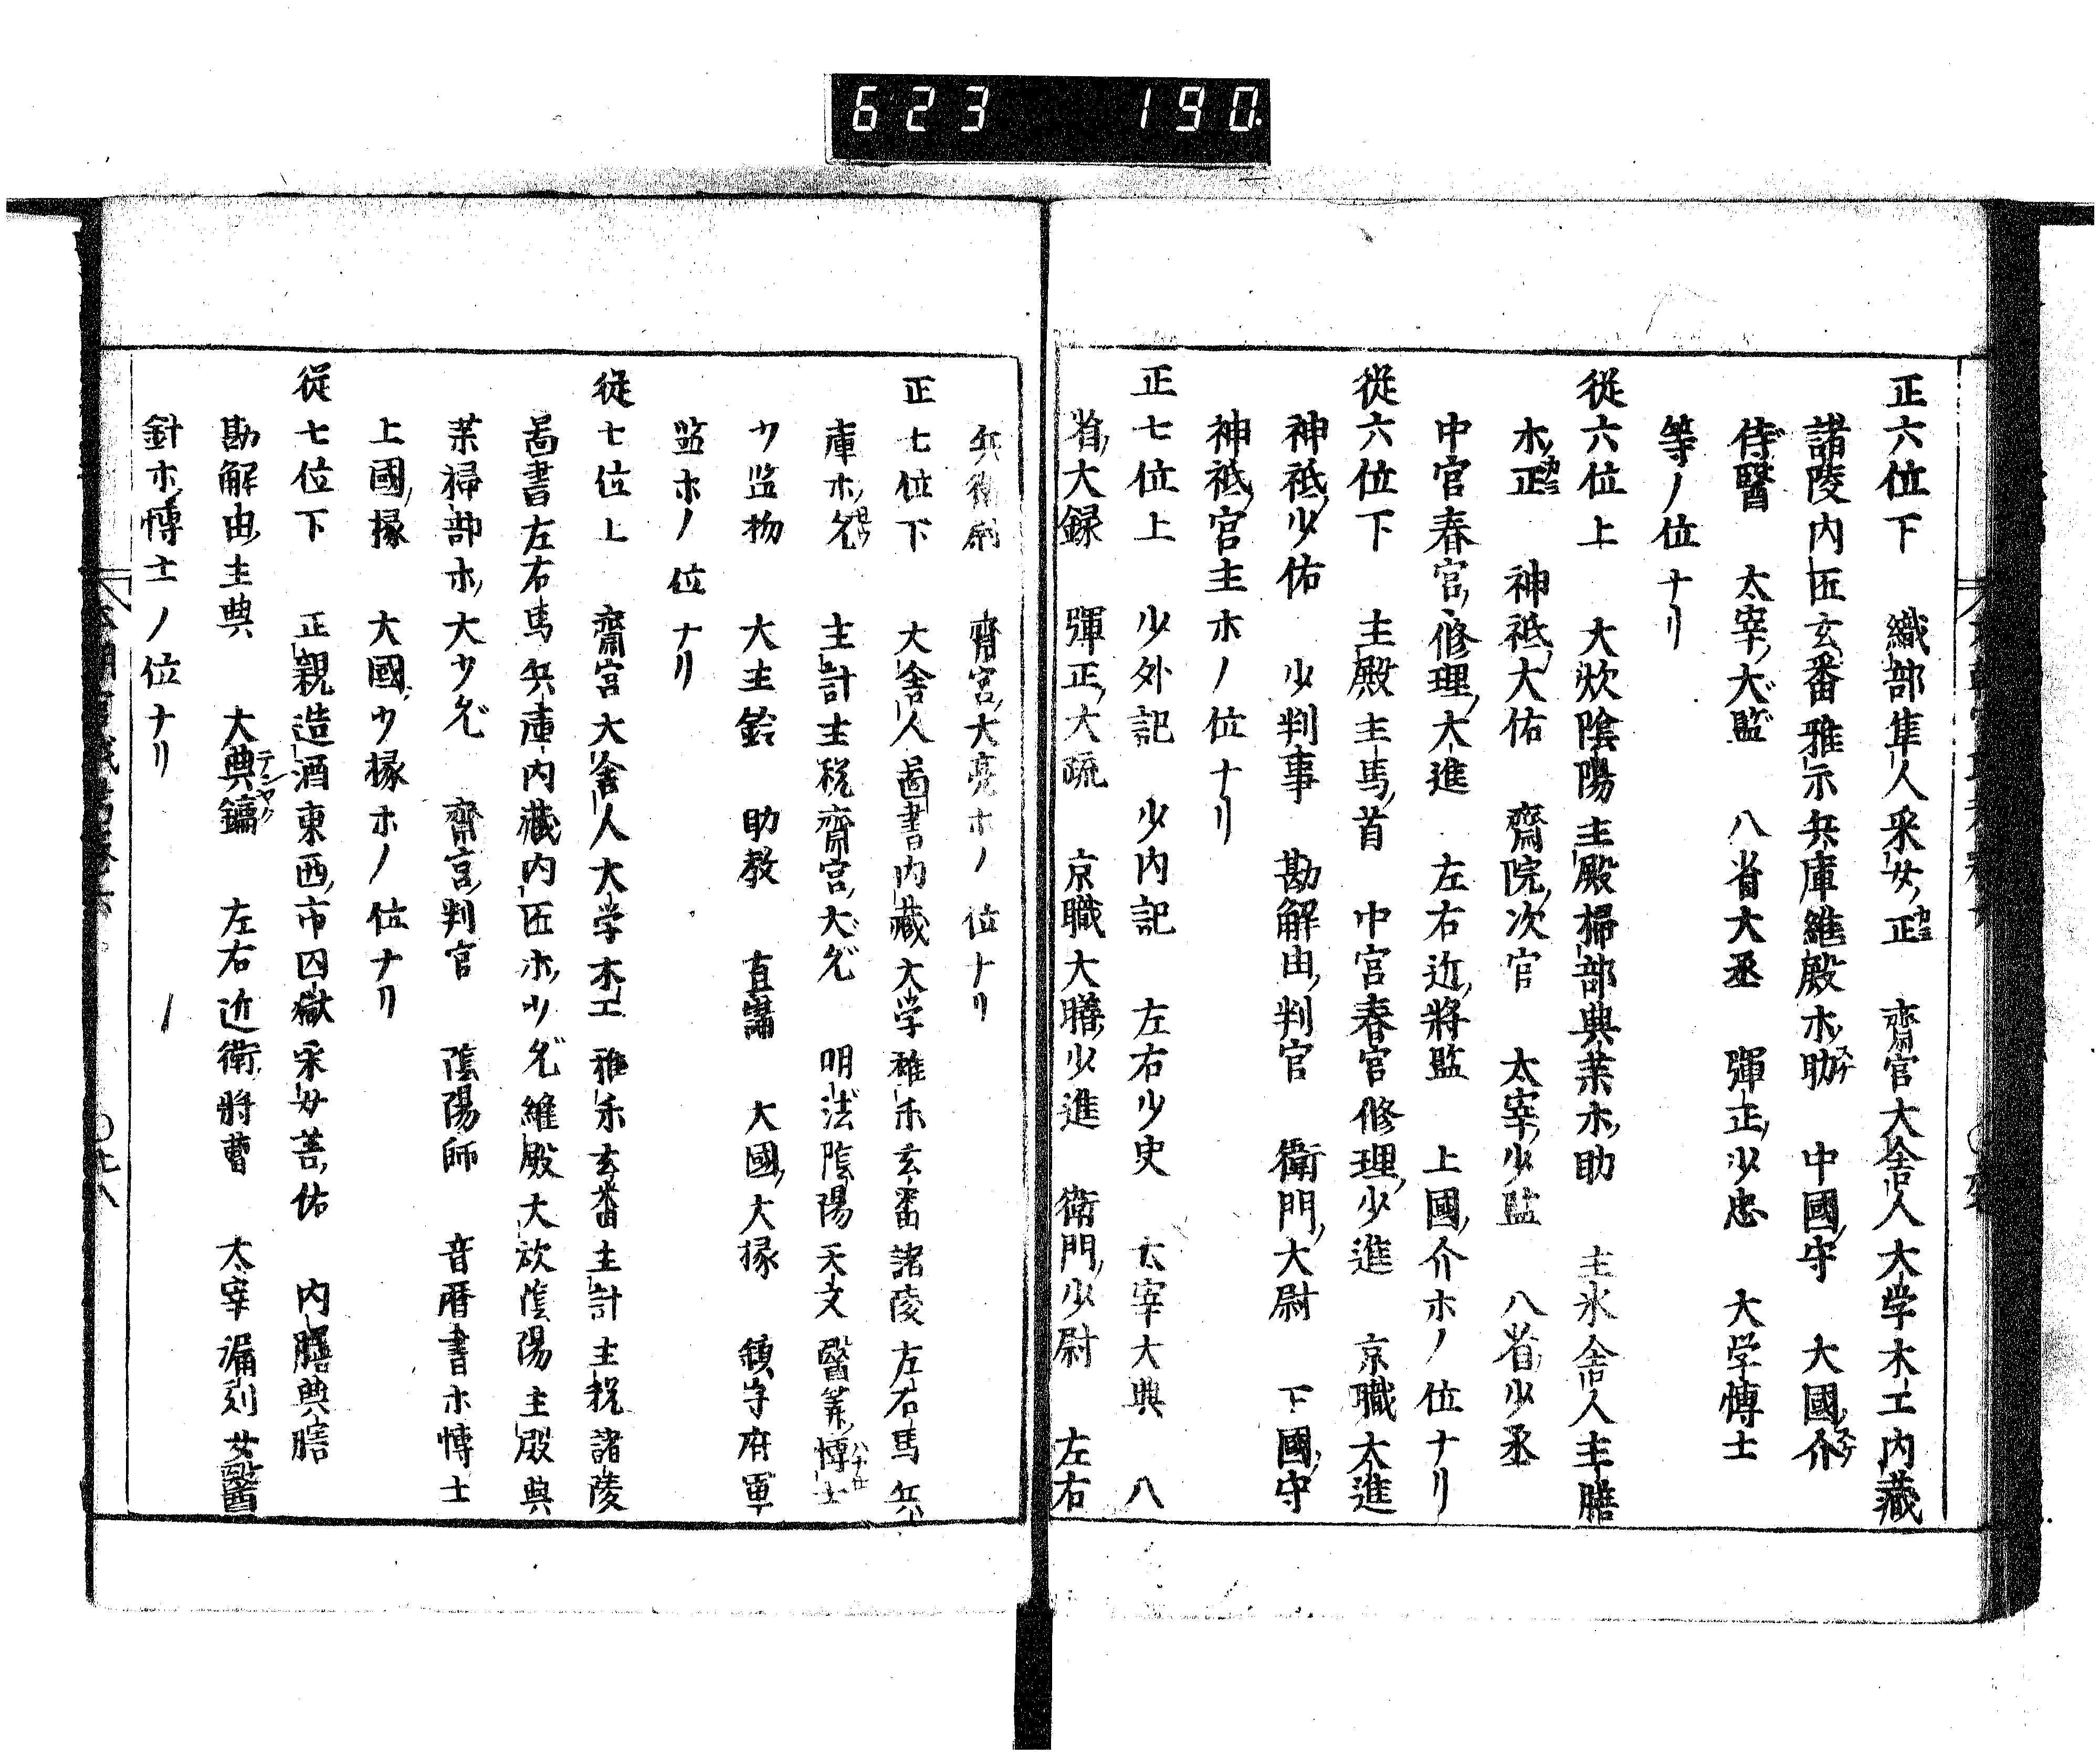 623 190.
正六位下 織部隼人采女正カミ 齋官大舎人大学木工内藏
諸陵内匠玄番雅乐兵庫維殿ホ助スケ 中國守 大國介スケ
侍醫 太宰大監 八省大丞 彈正少忠 大学博士
等ノ位ナリ
從六位上 大炊陰陽主殿掃部典薬ホ助 主水舎人主膳
ホ正カミ 神祇大佑 齋院次官 太宰少監 八省少丞
中官春官修理大進 左右近將監 上國介ホノ位ナリ
從六位下 主殿主馬首 中宮春官修理少進 京職大進
神祇少佑 少判事 勘解由判官 衛門大尉 下國守
神祇宮主ホノ位ナリ
正七位上 少外記 少内記 左右少史 太宰大典 八
省大録 彈正大疏 京職大膳少進 衛門少尉 左右
兵衛尉 齋宮大亮ホノ位ナリ
正七位下 大舎人啚書内藏大学雅乐玄番諸陵左右馬兵
庫ホ允 主計主税齋宮大允 明法陰陽天文醫薬博士ハカセ
少监物 大主鈴 助教 直講 大國大掾 鎮守府軍
监ホノ位ナリ
從七位上 齋宮大舎人大学木工雅乐玄番主計主税諸陵
啚書左右馬兵庫内藏内匠ホ少允維殿大炊陰陽主殿典
薬掃部ホ大少允 齋宮判官 陰陽師 音暦書ホ博士
上國掾 大國少掾ホノ位ナリ
從七位下 正親造酒東西市囚獄采女菩佑 内膳典膳
勘解由主典 大典鑰テンヤク 左右近衛將曹 太宰漏刻 女醫
針ホ博士ノ位ナリ